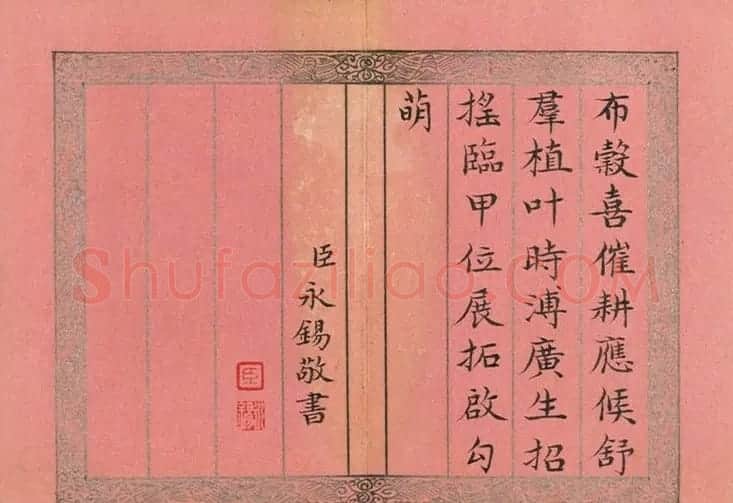 布穀喜催耕應候舒
羣植叶時溥廣生招
搖臨甲位展拓啟勾
萌
臣永錫敬書
臣
Shufaziliao.COM